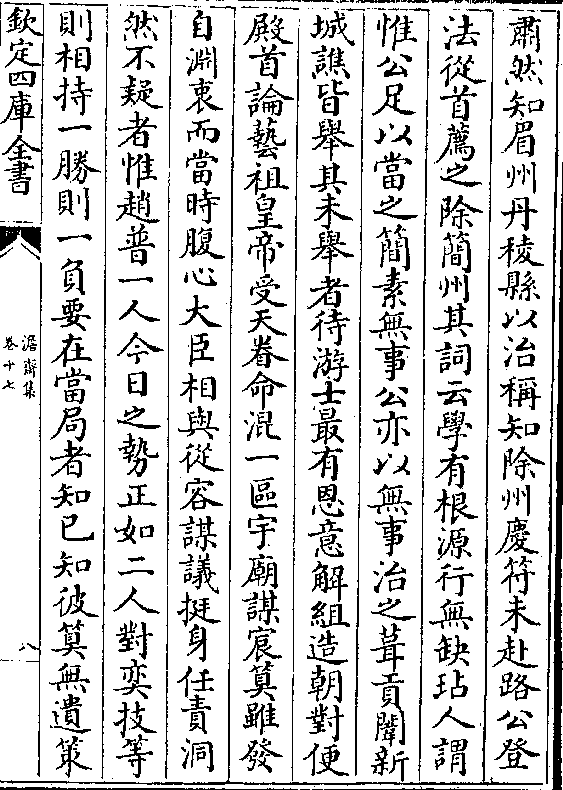 肅然知眉州丹稜縣以治稱知除州慶符未赴路公登
法從首薦之除簡州其詞云學有根源行無缺玷人謂
惟公足以當之簡素無事公亦以無事治之葺貢闈新
城譙皆舉其未舉者待游士最有恩意解組造朝對便
殿首論藝祖皇帝受天眷命混一區宇廟謀宸筭雖發
自淵衷而當時腹心大臣相與從容謀議挺身任責洞
然不疑者惟趙普一人今日之勢正如二人對奕技等
則相持一勝則一負要在當局者知已知彼筭無遺策
欽定四庫全書
澹齋集
卷十七
八